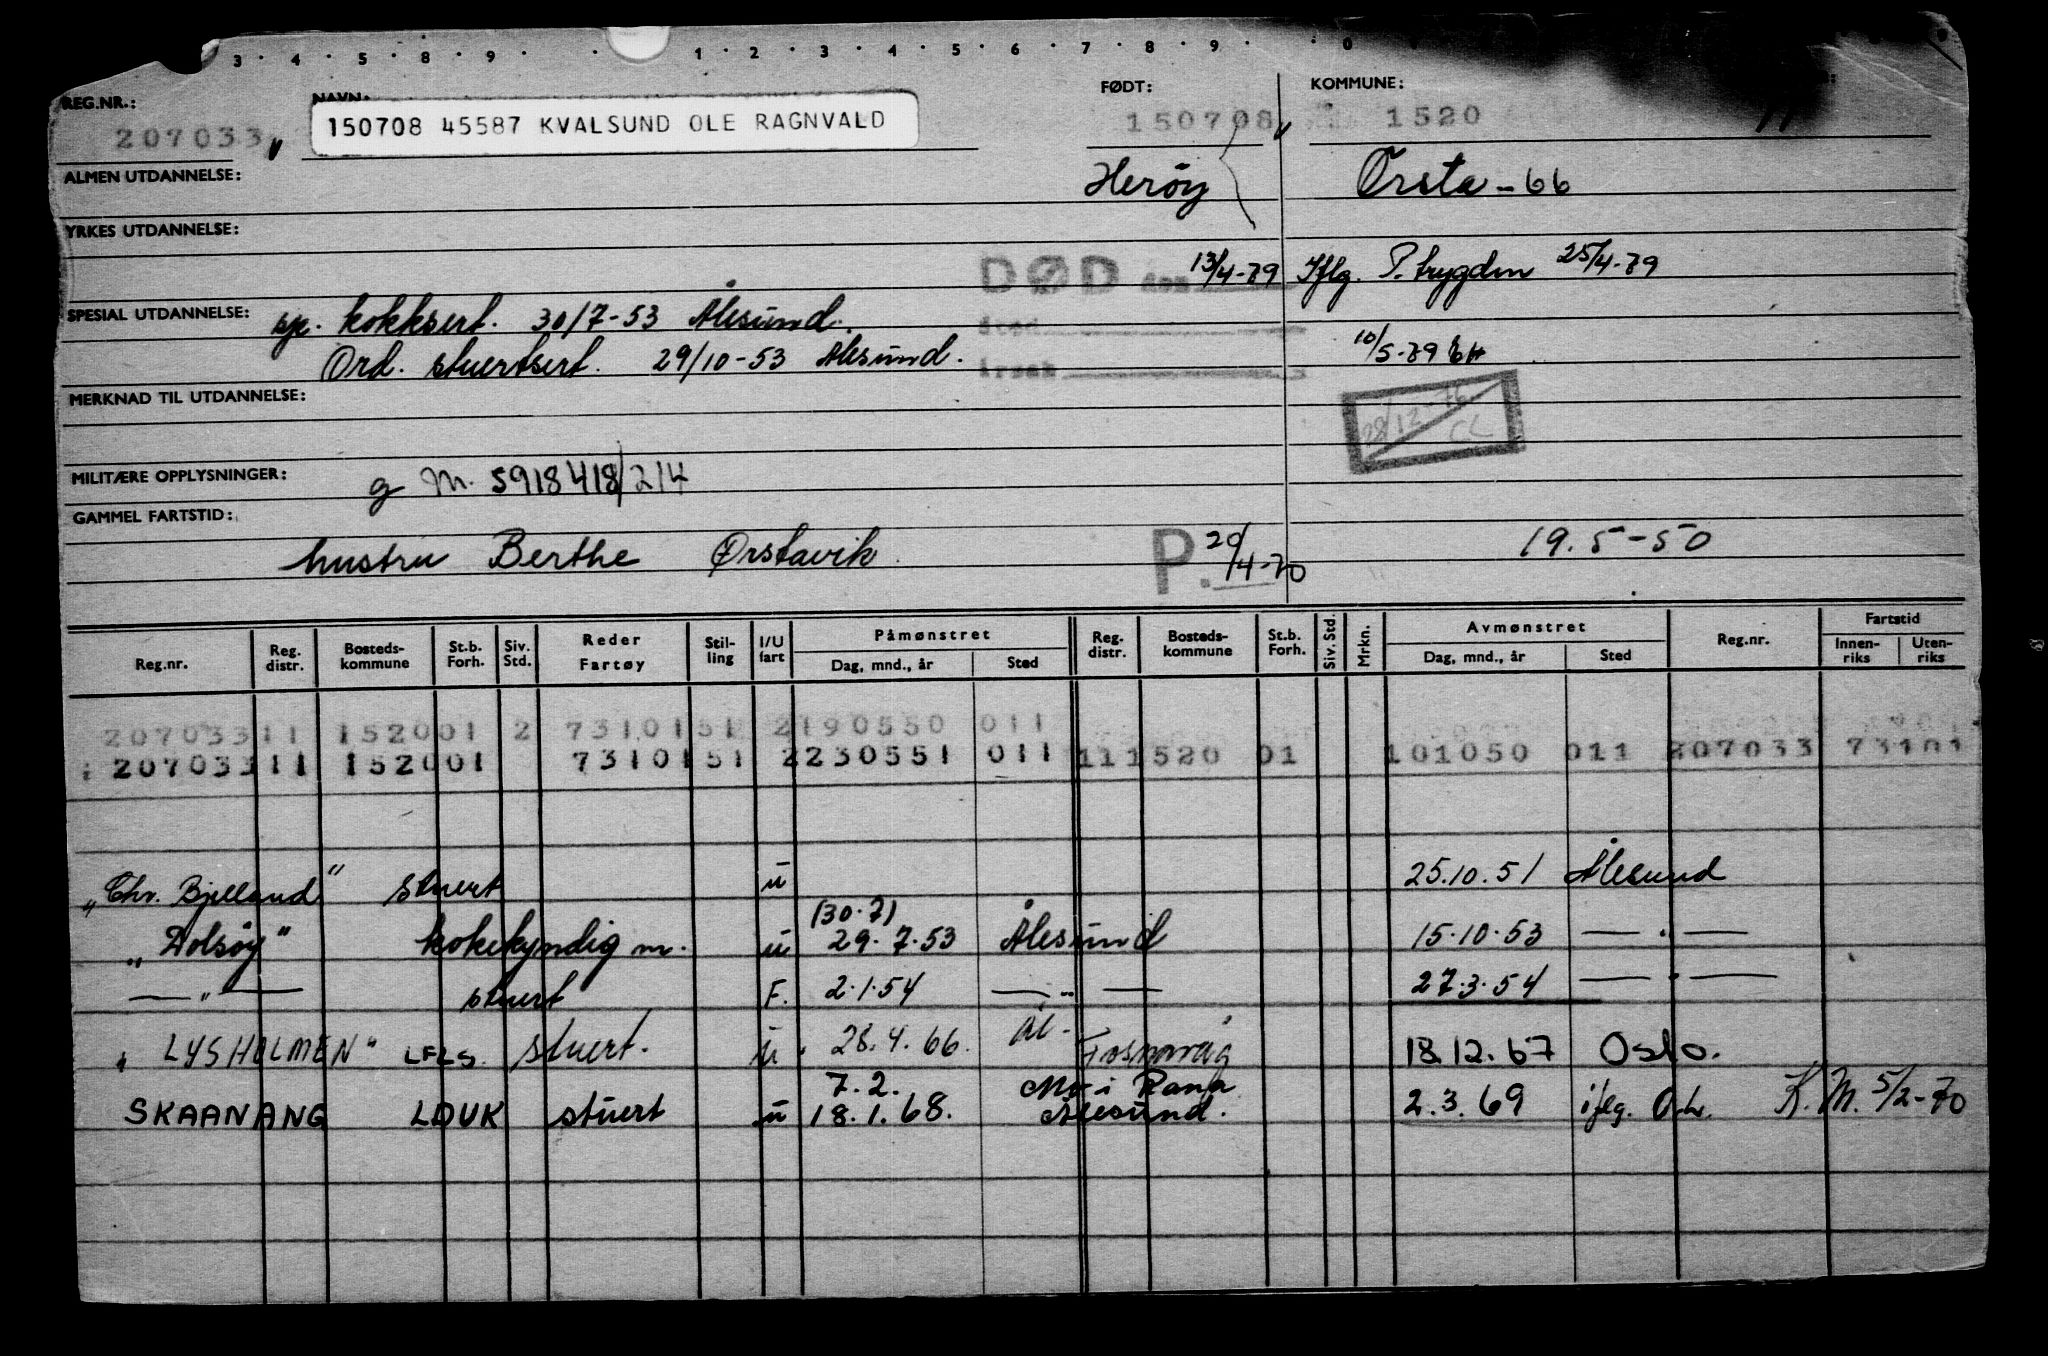 3 · 4 · 5 · 8 · 9 · · 1 · 2 · 3 · 4 · 5 · 6 · 7 · 8 · 9 · · 0
REG.NR.: NAVN: FØDT: KOMMUNE:
207033 150708 45587 KVALSUND OLE RAGNVALD 150708 1520
ALMEN UTDANNELSE: Herøy Ørsta - 66
YRKES UTDANNELSE:
DØD den 13/4-79 Iflg. P. trygden 25/4-79
SPESIAL UTDANNELSE: sje. kokksert. 30/7-53 Ålesund. Sted
Ord. stuertsert. 29/10-53 Ålesund. Årsak 10/5-79
MERKNAD TIL UTDANNELSE:
28/12-76 CL
MILITÆRE OPPLYSNINGER: g m. 5918418/214
GAMMEL FARTSTID:
hustru Berthe Ørstavik. P. 20/4-70 19.5-50
Reg.nr. Reg. distr. Bosteds-kommune St.b. Forh. Siv. Std. Reder Fartøy Stil-ling I/U fart Påmønstret Dag, mnd., år Sted Reg. distr. Bosteds-kommune St.b. Forh. Siv. Std. Mrkn. Avmønstret Dag, mnd., år Sted Reg.nr. Fartstid Innen-riks Uten-riks
20703311 152001 2 7310151 2190550 011
20703311 152001 7310151 2230551 011 111520 01 101050 011 207033 73101
"Chr. Bjelland" stuert u 25.10.51 Ålesund
(30.7)
"Dolsøy" kokekyndig m. u 29.7.53 Ålesund 15.10.53 — " —
— " — stuert F. 2.1.54 — " — 27.3.54 — " —
"LYSHOLMEN" LFLS. stuert. u. 28.4.66. Ål- Fosnavåg 18.12.67 Oslo.
7.2. Mo i Rana
SKAANANG LDUK stuert u 18.1.68. Ålesund. 2.3.69 iflg. K.M. 5/2-70